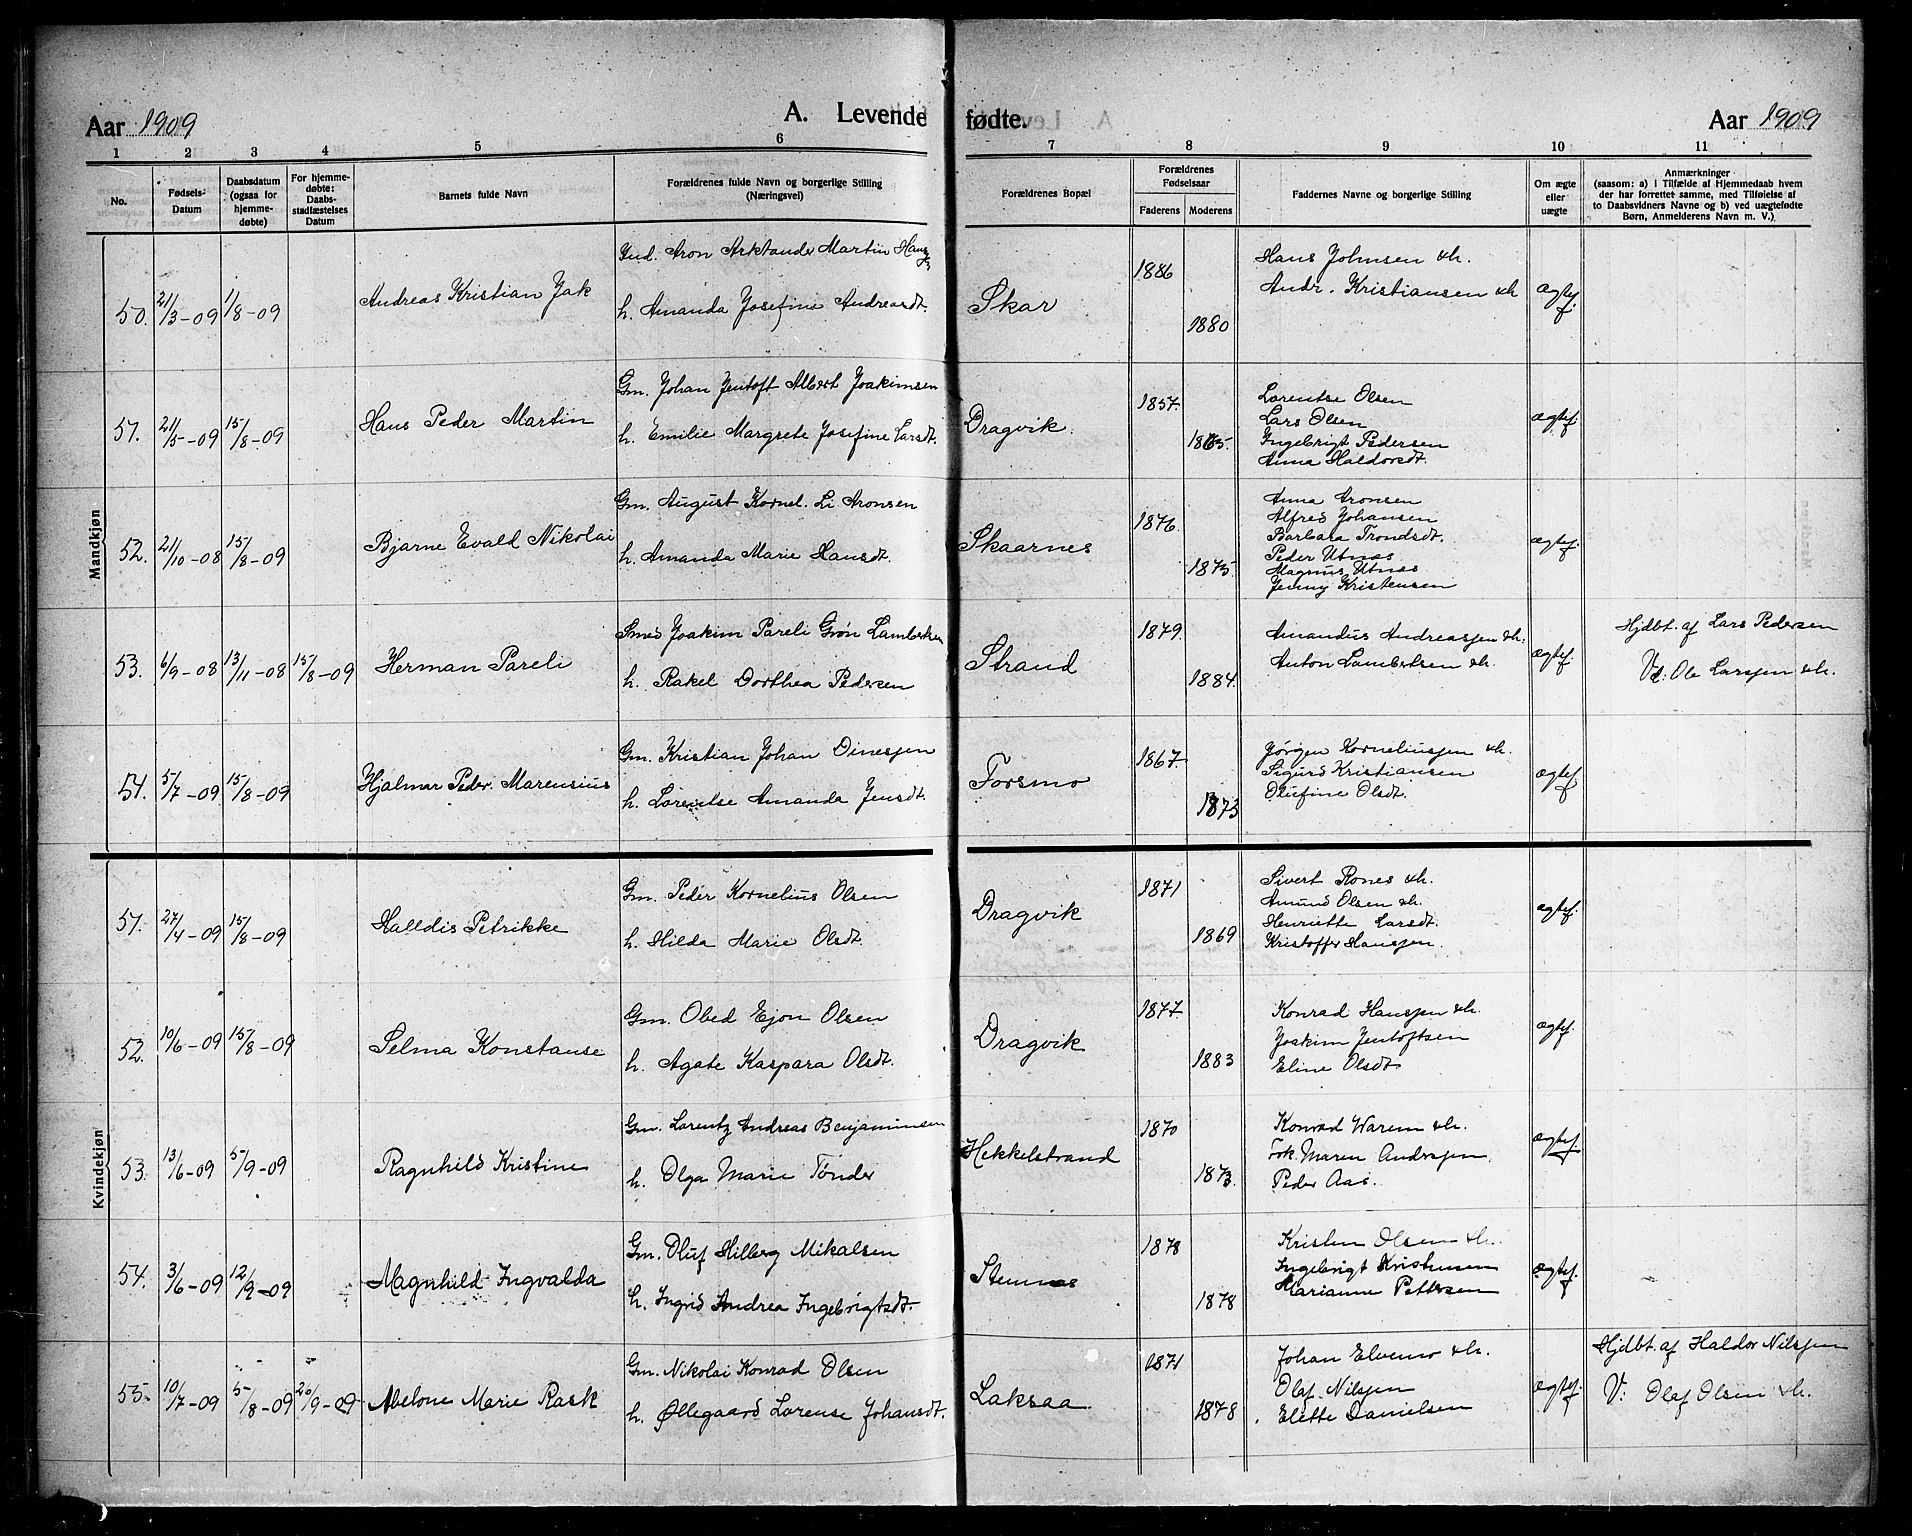 Aar 1909
A. Levende fødte.
Aar 1909
1 2 3 4 5 6 7 8 9 10 11
No.
Fødsels-Datum
Daabsdatum (ogsaa for hjemmedøbte)
For hjemmedøbte: Daabsstadfæstelses Datum
Barnets fulde Navn
Forældrenes fulde Navn og borgerlige Stilling (Næringsvei)
Forældrenes Bopæl
Forældrenes Fødselsaar
Faderens Moderens
Faddernes Navne og borgerlige Stilling
Om ægte eller uægte
Anmærkninger
(saasom: a) i Tilfælde af Hjemmedaab hvem
der har forrettet samme, med Tilføielse af
to Daabsvidners Navne og b) ved uægtefødte
Børn, Anmelderens Navn m. V.)
Mandkjøn
50. 21/3-09 1/8-09
Andreas Kristian Jak
Ind. Aron Arktander Martin
h. Amanda Josefine Andreasdt.
Skar
1886
1880
Hans Johnsen &h.
Andr. Kristiansen &h
ægtef.
51. 21/5-09 15/8-09
Hans Peder Martin
Gm. Johan Jentoft Albert Joakimsen
h. Emilie Margrete Josefine Larsdt.
Dragvik.
1857.
1865.
Lorentse Olsen
Lars Olsen
Ingebrigt Pedersen
Anna Haldorsdt.
ægtef.
52. 21/10-08 15/8-09
Bjarne Evald Nikolai
Gm. August Kornel. Li Aronsen
h. Amanda Marie Hansdt.
Skaarnes
1876.
1875.
Anna Aronsen
Alfred Johansen
Barbara Trondsdt.
Peder Utnæs
Magnus Utnæs
Jenny Kristensen
ægtef.
53. 6/9-08 13/11-08 15/8-09
Herman Pareli
Smed Joakim Pareli Grøn Lambertsen
h. Rakel Dorthea Pedersen
Strand
1879.
1884.
Amandus Andreasjen &h.
Anton Lambertsen &h.
ægtef.
Hjdbt. af Lars Pedersen
V: Ole Larsjen &h.
54. 5/7-09 15/8-09
Hjalmar Peder Marensius
Gm. Kristian Johan Dinesjen
h. Lorentse Amanda Jensdt.
Forsmo
1867.
1873
Jørgen Korneliusjen &h.
Sigurd Kristiansen
Olufine Olsdt.
ægtef.
Kvindekjøn
51. 27/4-09 15/8-09
Halldis Petrikke
Gm. Peder Kornelius Olsen
h. Hilda Marie Olsdt.
Dragvik
1871
1869
Sivert Rones &h.
Amund Olsen &h.
Henriette Larsdt.
Kristoffer Hansjen.
ægtef.
52. 10/6-09 15/8-09
Selma Konstanse
Gm. Obed Ejon Olsen
h. Agate Kaspara Olsdt.
Dragvik
1877.
1883
Konrad Hansjen &h.
Joakim Jentoftsen
Eline Olsdt
ægtef.
53. 13/6-09 5/9-09
Ragnhild Kristine
Gm. Lorentz Andreas Benjaminsen
h. Olga Marie Tønder
Hekkelstrand
1870
1873.
Konrad Warem &h.
Frk. Maren Andrsjen.
Peder Aas.
ægtef.
54. 3/6-09 12/9-09
Magnhild Ingvalda
Gm. Oluf Hilberg Mikalsen
h. Ingrid Andrea Ingebrigtsdt.
Stemnes
1878
1878
Kristen Olsen &h.
Ingebrigt Kristensen
Marianne Pettersen
ægtef.
55. 10/7-09 5/8-09 26/9-09
Abelone Marie Rask
Gm. Nikolai Konrad Olsen
h. Øllegaard Lorense Johansdt.
Laksaa
1871
1878
Johan Elvemo &h.
Olaf Nilsjen
Elette Danielsen
ægtef.
Hjdbt. af Haldor Nilsjen
V: Olaf Olsen &h.